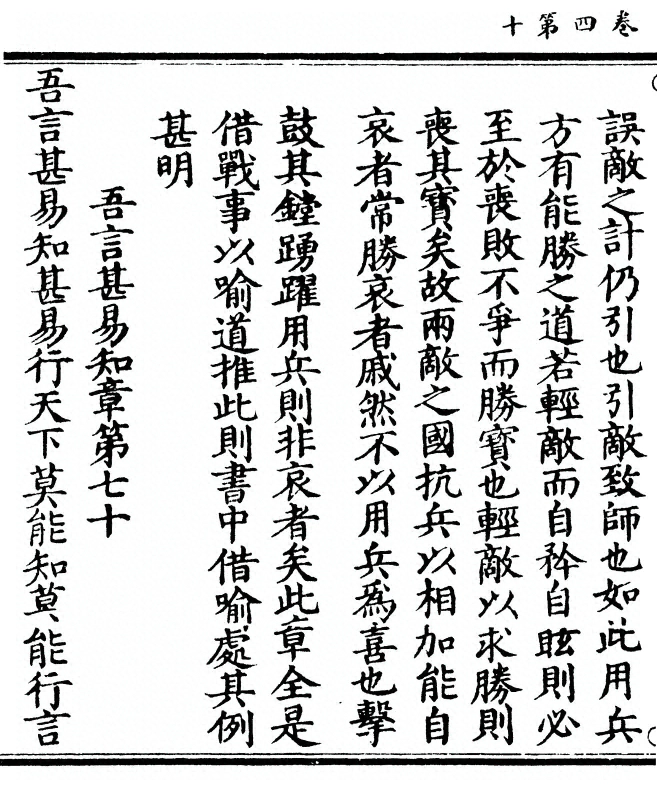 卷四第十
誤敵之計仍引也引敵致師也如此用兵
方有能勝之道若輕敵而自矜自眩則必
至於喪敗不爭而勝寶也輕敵以求勝則
喪其寶矣故兩敵之國抗兵以相加能自
哀者常勝哀者戚然不以用兵爲喜也擊
鼓其鏜踴躍用兵則非哀者矣此章全是
借戰事以喻道推此則書中借喻處其例
甚明
吾言甚易知章第七十
吾言甚易知甚易行天下莫能知莫能行言